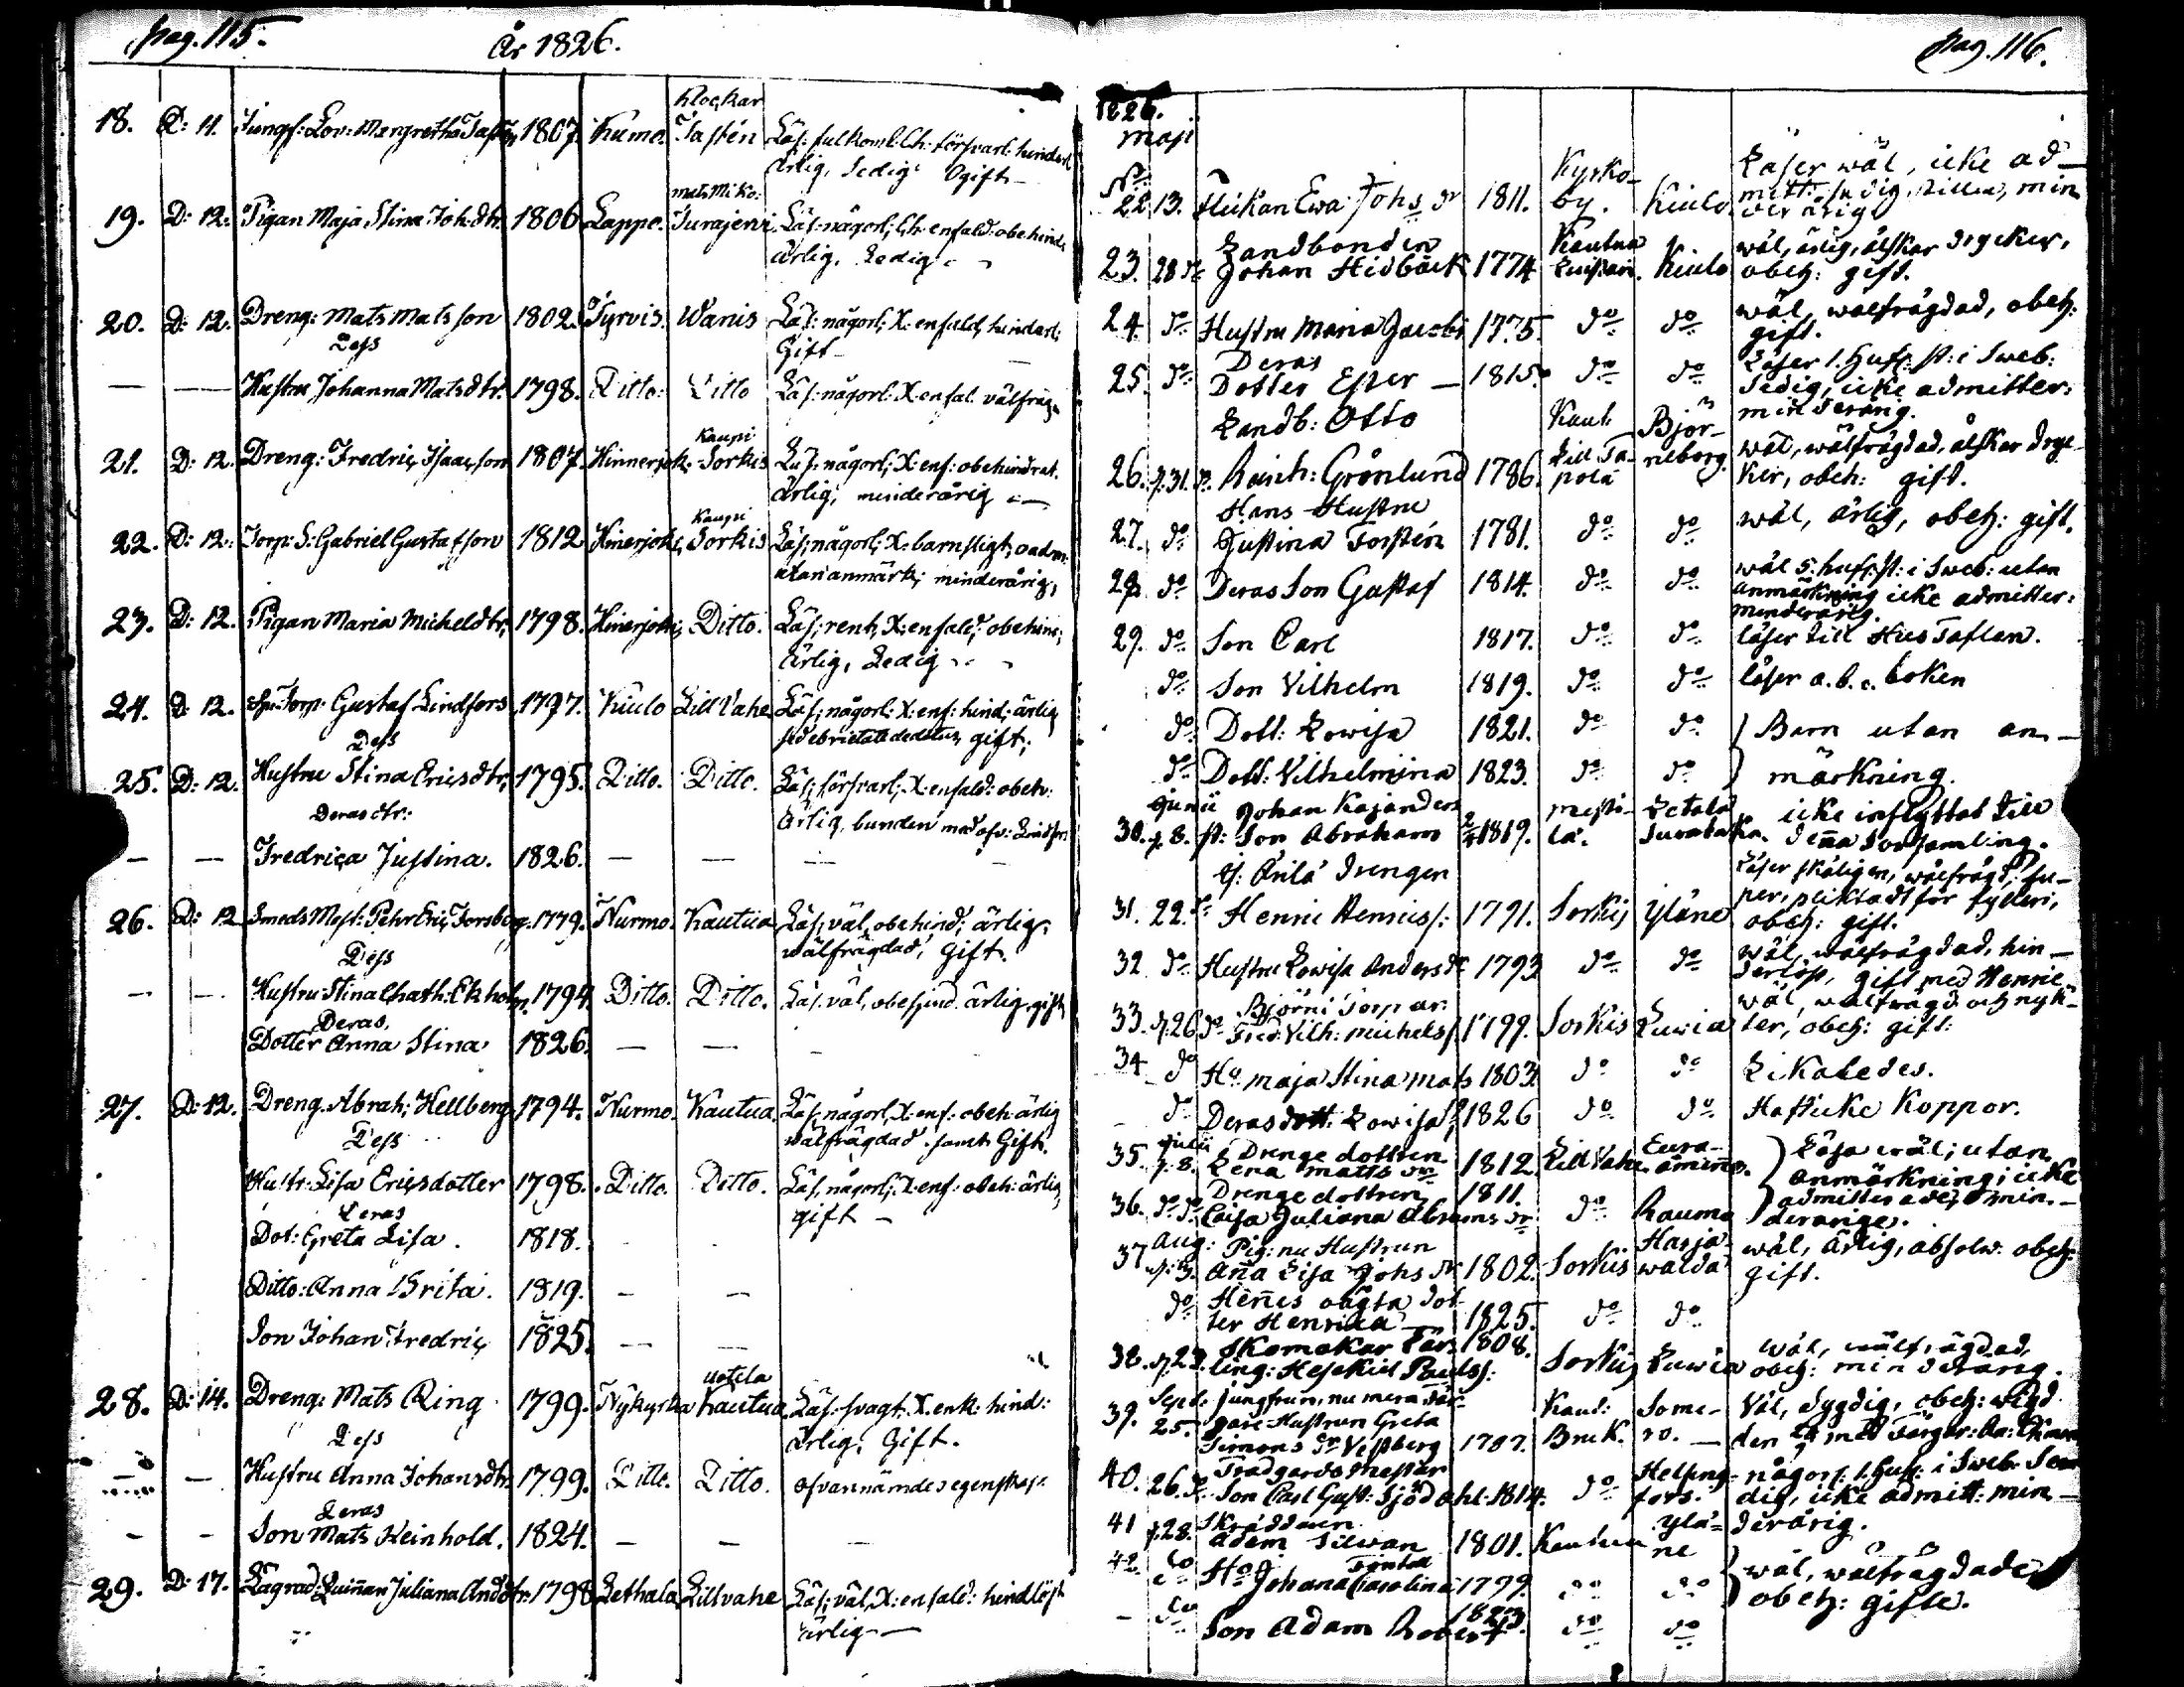 pag. 115.
År 1826.
18. D: 11. Jungf: Lov: Margretha Tasten 1807. Kumo. Klockar Tastén Läs: fulkoml: Ch: försvarl: hinderl
ärlig, Sedig Ogift
19. D: 12. Pigan Maja Stina Joh:dtr. 1806 Lappo. Mats Miko: Turajervi Läs: någorl; Ch: enfald: obehind:
ärlig, Ledig
20. D: 12. Dreng: Mats Matsson 1802. Tyrvis. Wanis Läs: någorl; X: enfald, hinderl;
Dess Gift
— — Hustru Johanna Matsdtr. 1798. Ditto: Ditto Läs: någorl: X: enfal. välfräg
21. D: 12. Dreng: Fredric Isaacsson 1807. Hinnerjok: Kaupi Sorkis Läs: någorl; X: enf: obehindrat.
ärlig, minderårig
22. D: 12: Torp: S: Gabriel Gustafsson 1812 Hinerjoki, Kaupi Sorkis Läs; någorl; X: barnsligt, oadm:
utan anmärk; minderårig,
23. D: 12. Pigan Maria Micheldtr, 1798. Hinerjoki, Ditto. Läs; rent, X: enfald: obehind;
ärlig, Ledig
24. D: 12. Torp: Gustaf Lindfors 1797. Kiulo Lill Vahe Läs; någorl: X: enf: hind; ärlig
Dess ebrietati deditus, gift;
25. D: 12. Hustru Stina Ericsdtr, 1795. Ditto. Ditto. Läs; försvarl; X: enfald: obeh:
Deras dtr: ärlig, bunden med ofv: Lindfors
— — Fredrica Justina. 1826. — — — —
26. D: 12 Smeds Mäst: Pehr Eric Forsberg. 1779. Nurmo. Kautua Läs; väl, obehind; ärlig,
Dess wälfrägdad, Gift.
— — Hustru Stina Cath: Ekholm. 1794 Ditto. Ditto. Läs. väl, obehind. ärlig, gift
Deras
Dotter Anna Stina 1826. — — -
27. D: 12. Dreng. Abrah; Hellberg 1794. Nurmo. Kautua. Läs, någorl, X. enf: obeh: ärlig
Dess wälfrägdad. samt Gift.
Hustr: Lisa Ericsdotter 1798. Ditto. Ditto. Läs, någorl; X: enf: obeh: ärlig,
Deras gift —
Dot: Greta Lisa. 1818. - -
Ditto: Anna Brita. 1819. — —
Son Johan Fredric 1825. — —
28. D: 14. Dreng: Mats Ring 1799. Nykyrka Uotila Kautua Läs: svagt, X. enk: hind:
Dess ärlig, Gift.
— — Hustru Anna Johansdtr. 1799. Ditto. Ditto. ofvannämde egenskap:
Deras
— — Son Mats Reinhold. 1824. — — —
29. D: 17. Qvinnan Juliana And:dtr: 1798 Lethala Lillvahe Läs; väl, X: enfald: hindlöst
ärlig —
pag. 116.
1826.
Maji
No 22. 13. Flickan Ewa Johs dr 1811. Kyrko-by. Kiulo Läser wäl, icke ad-
mitt: sedig, stilla, min
derårig
23. 28 do Landbonden Johan Hidbäck 1774 Kautua Kiulo wäl, ärlig, älskar drycker,
obeh: gift.
24. do Hustru Maria Jacobs 1775. do do wäl, wälfrägdad, obeh:
gift.
25. do Deras Dotter Ester — 1815. do do Läser 1. Huf: st: i Sweb:
Sedig, icke admitter:
minderårig.
26. 31. Landb: Otto Reinh: Grönlund 1786. Kaut: Lill Ta-pola Björ-neborg wäl, wälfrägdad, älskar dryc-
ker, obeh: gift.
27. do Hans Hustru Justina Torstén 1781. do do wäl, ärlig, obeh: gift.
28. do Deras Son Gustaf 1814. do do wäl 5: huf: st: i Sweb: utan
anmärkning icke admitter:
minderårig.
29. do Son Carl 1817. do do läser till Hus Taflan.
do Son Vilhelm 1819. do do läser a. b. c. boken
do Dott: Lowisa 1821. do do Barn utan an-
do Dott: Vilhelmina 1823. do do märkning.
30. Junii 8. Johan Kajanders st: Son Abraham 1819. Letala icke inflyttat till
denna Församling.
31. 22. Anilä drengen Henric Henrics: 1791. Sorkis Yläne Läser skäligen, wälfrägd, su-
per, pliktadt för fylleri,
obeh: gift.
32 do Hustru Lowisa Anders dr 1793 do do wäl, wälfrägdad, hin-
derlöst, gift med Henric.
33. 26 Björni Torpar. Fred: Vilh: Michels: 1799. Sorkis Luwia wäl, wälfrägd och nyk-
ter, obeh: gift:
34 do Ho Maja Stina Mats 1803 do do Likaledes.
do Deras dott: Lowisa 1826 do do Haft icke koppor.
35. Julii 8. Drenge dottren Lena Matts dr 1812. Lill Vahe Eura-åminne. Läsa wäl; utan
anmärkning; icke
36. do do Drenge dottren Caisa Juliana Abrams dr 1811. do Rauma admitterade, min-
derårige.
37 Aug: 3. Pig: nu Hustrun Anna Lisa Johs dr 1802. Sorkis Harja-walda wäl, ärlig, absolv: obeh:
gift.
do Hennes oägta dot ter Henrica 1825. do do
38. 23. Skomakar Lär ling: Hesekiel Pauls: 1808. Sorkis Luwia wäl, wälfrägdad,
obeh: minderårig.
39. Sept: 25. Jungfrun, nu mera Fär gare Hustrun Greta Simons dr Vessberg 1787. Kaut: Bruk. Some-ro. — Väl, dygdig, obeh: wigd
den med Färgar:
40. 26. Trädgårds Mästar Son Carl Gust: Sjödahl. 1814. do Helsing-fors. någorl. 1. Huf: i Sweb:
dig, icke admitt: min-
derårig.
41 28. Skräddaren Adam Silwan 1801. Kautua Ylä-ne
42. do Ho Johana Carolina 1799. do do wäl, wälfrägdade
obeh: gifte.
— do Son Adam Robert 1823. do do